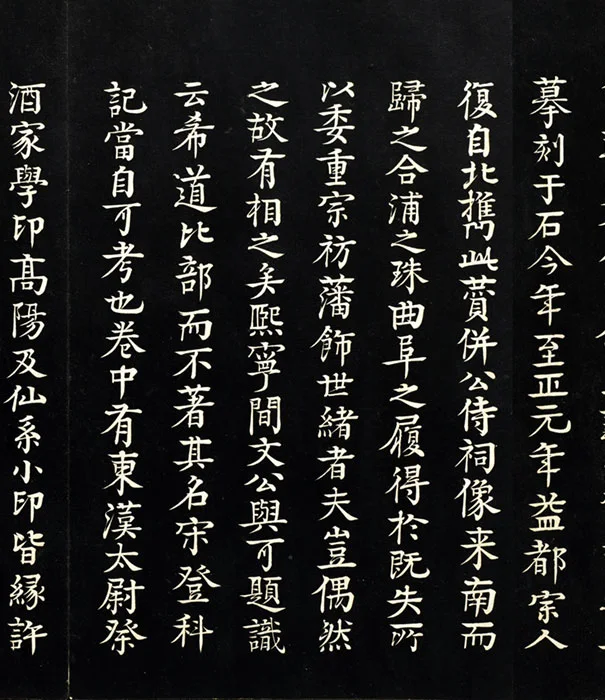 摹刻于石今年至正元年益都宗人
復自北攜此蕒併公侍祠像来南而
歸之合浦之珠曲阜之履得於既失所
以委重宗祊藩飾世緒者夫豈偶然
之故有相之矣熈寧間文公與可題識
云希道比部而不著其名宋登科
記當自可考也卷中有東漢太尉祭
酒家學印高陽及仙系小印皆緣許